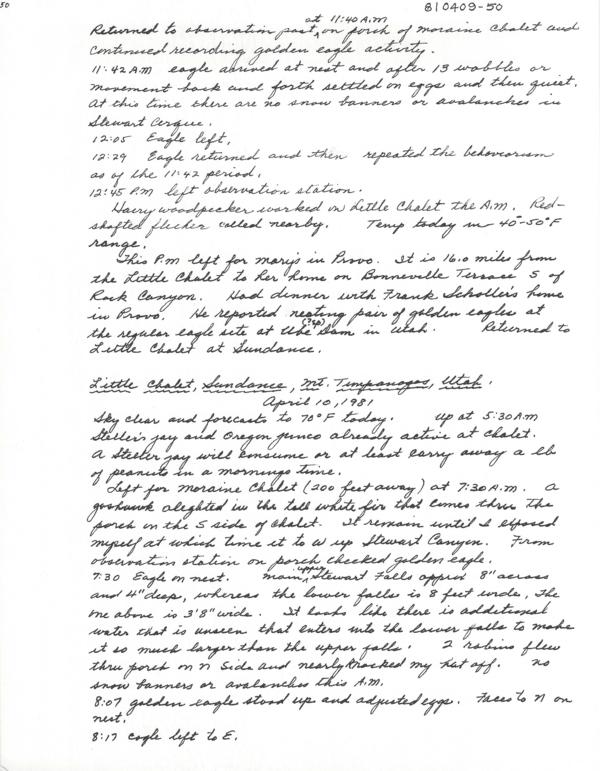 50
810409-50
Returned to observation post at 11:40 A.M on porch of moraine Chalet and
continued recording golden eagle activity.
11:42 A.M eagle arrived at nest and after 13 wobbles or
movement back and forth settled on eggs and then quiet.
At this time there are no snow banners or avalanches in
Stewart Cirque.
12:05 Eagle left,
12:29 Eagle returned and then repeated the behaviorism
as of the 11:42 period.
12:45 P.M left observation station.
Hairy woodpecker worked on Little Chalet the A.M. Red-
shafted flicker called nearby. Temp today in 40°-50°F
range.
This P.m left for marj's in Provo. It is 16.0 miles from
the Little Chalet to her home on Bonneville Terrace S of
Rock Canyon. Had dinner with Frank Scholler's home
in Provo. He reported nesting pair of golden eagles at
the regular eagle site at Ube (?sp) Dam in Utah. Returned to
Little Chalet at Sundance.
Little Chalet, Sundance, Mt. Timpanogos, Utah.
April 10, 1981
Sky clear and forecasts to 70°F today. Up at 5:30 A.M
Steller's jay and Oregon junco already active at Chalet.
A Steller jay will consume or at least carry away a lb
of peanuts in a mornings time.
Left for Moraine Chalet (200 feet away) at 7:30 A.M. A
goshawk aleghted in the tall white fir that comes thru the
porch on the S side of Chalet. It remain until I exposed
myself at which time it to W up Stewart Canyon. From
observation station on porch checked golden eagle.
7:30 Eagle on nest. Main upper Stewart Falls approx 8" across
and 4" deep, whereas the lower falls is 8 feet wide, The
one above is 3'8" wide. It looks like there is additional
water that is unseen that enters into the lower falls to make
it so much larger than the upper falls. 2 robins flew
thru porch on N side and nearly knocked my hat off. No
snow banners or avalanches this A.M.
8:07 golden eagle stood up and adjusted eggs. Faces to N on
nest.
8:17 eagle left to E.